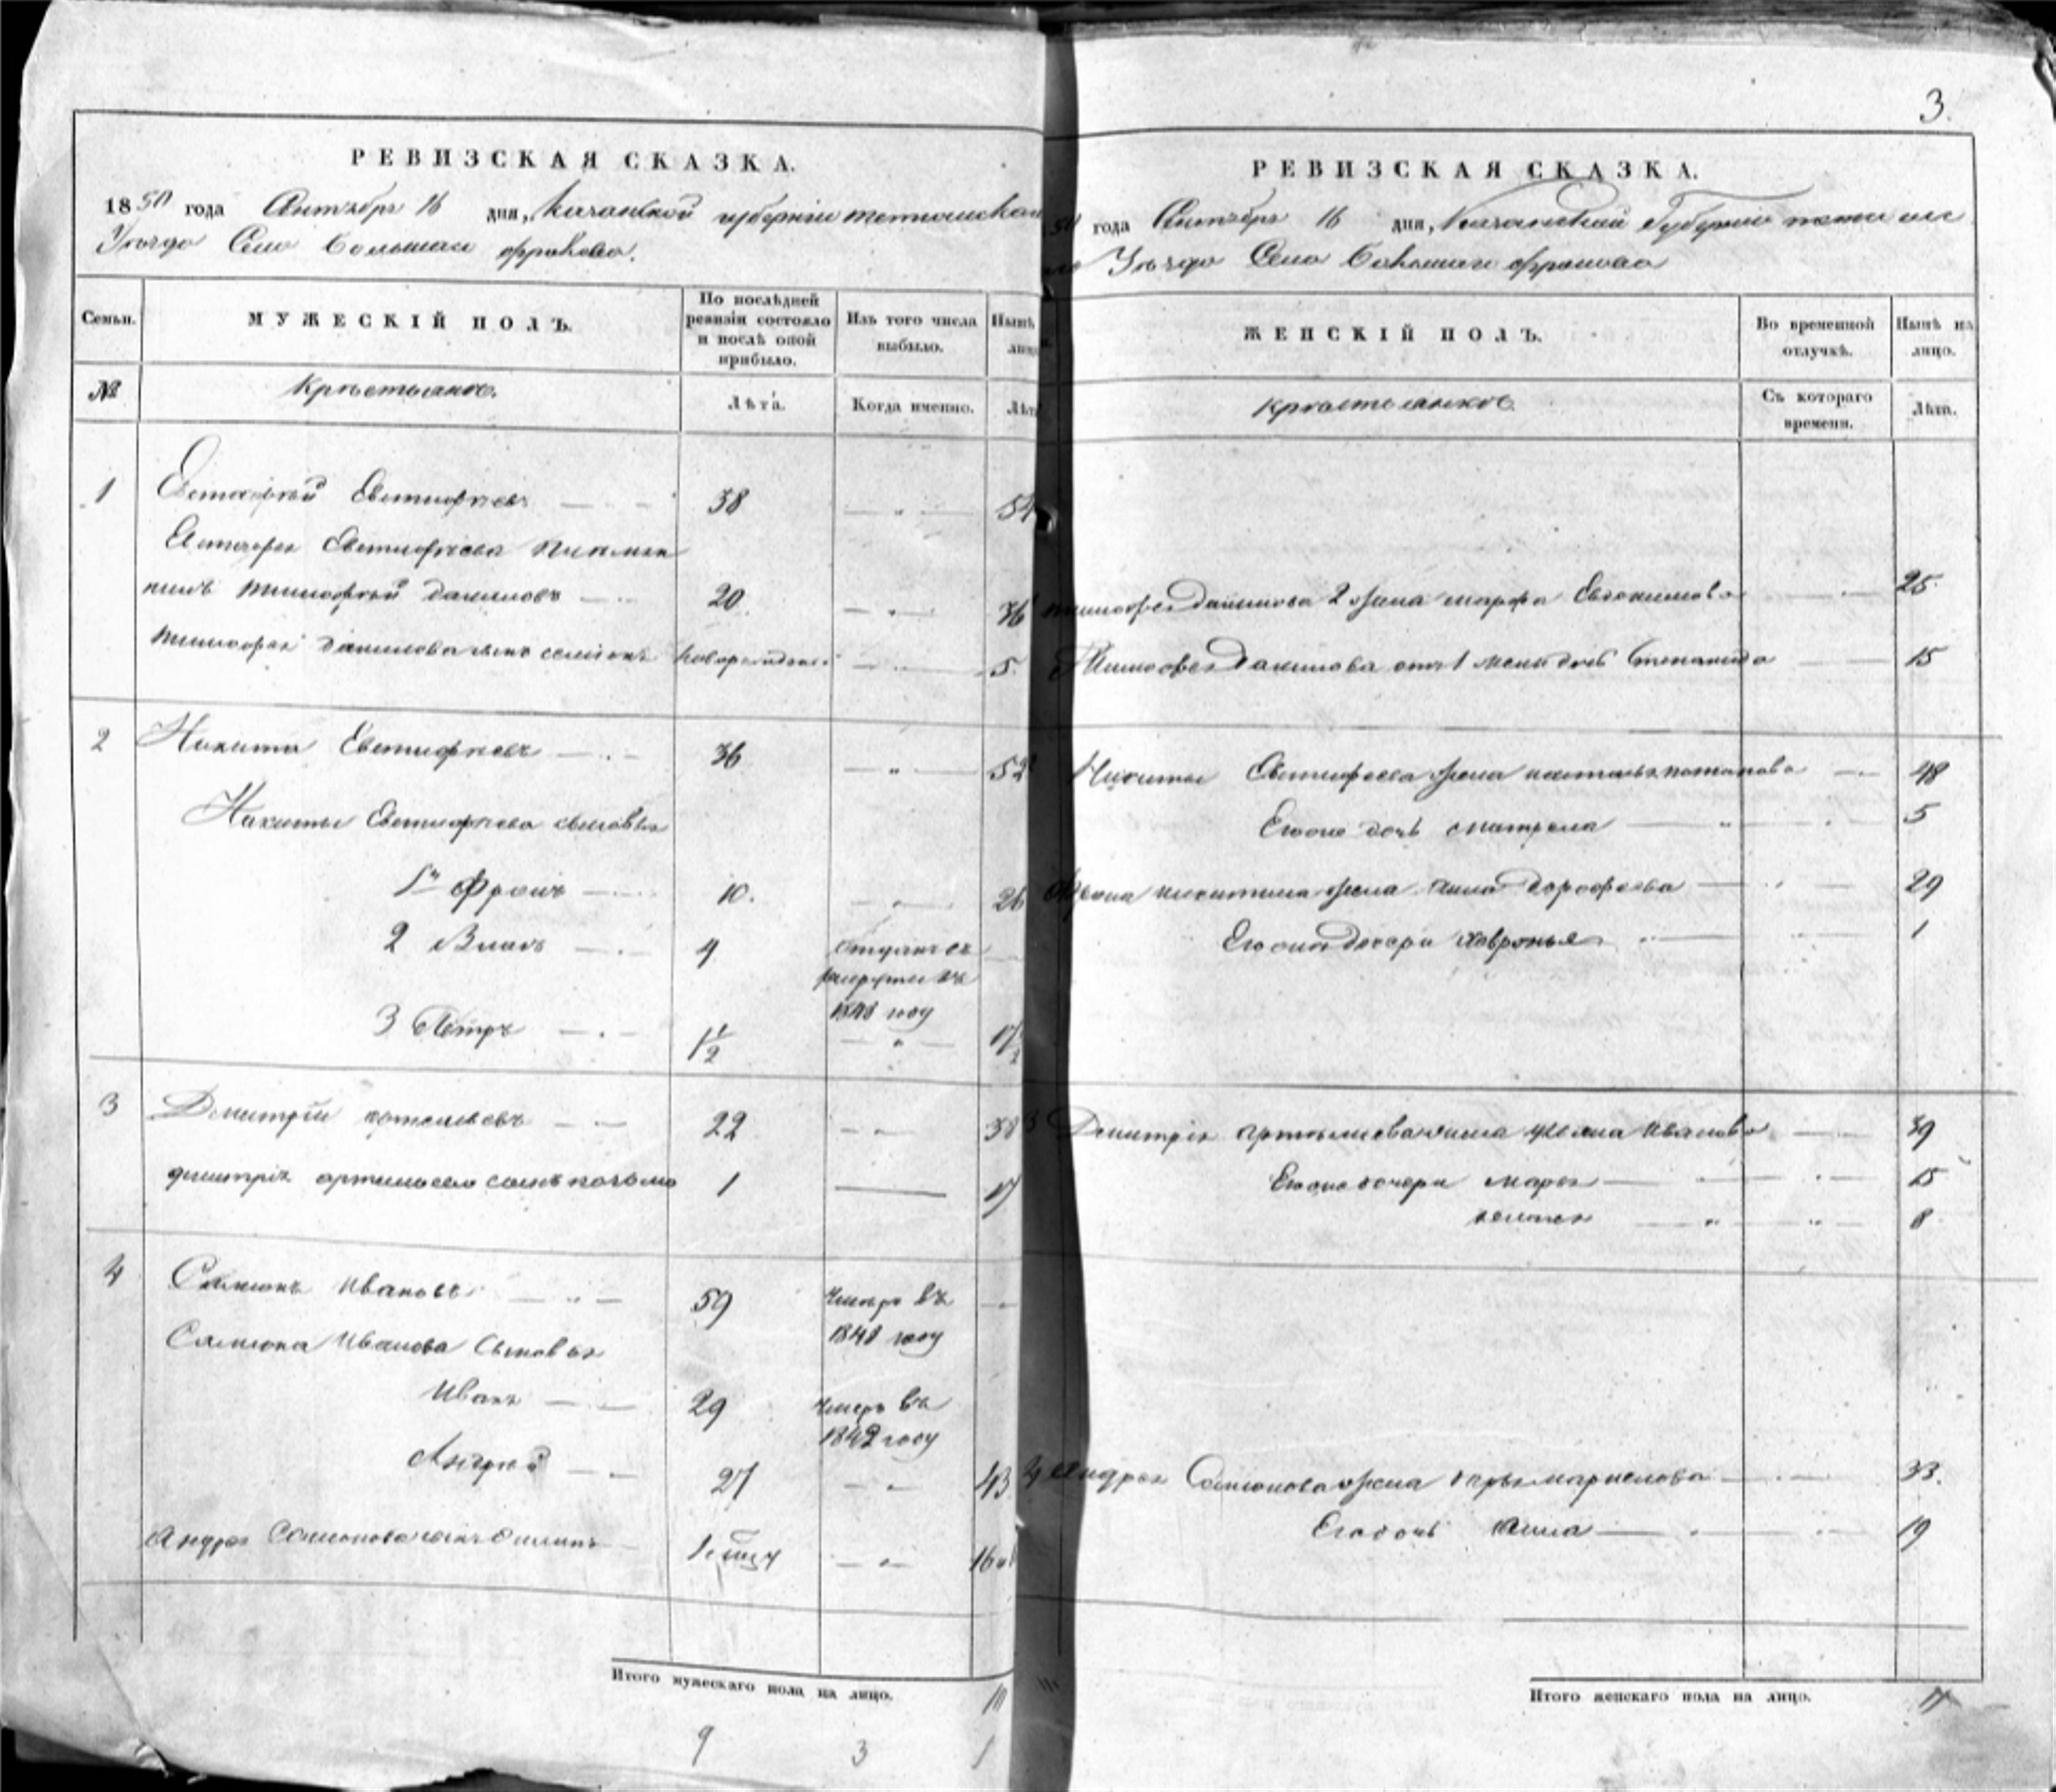 3.
РЕВИЗСКАЯ СКАЗКА.
1850 года Сентября 16 дня, Казанской губернии тетюшской
Уезда Село большая фролова.
Семьи. МУЖЕСКІЙ ПОЛЪ. По послѣдней ревизіи состояло и послѣ оной прибыло. Изъ того числа выбыло. Нынѣ лицо
№ Крѣстьянѣ. Лѣта. Когда именно. Лѣта
1 Евстифѣевъ 38 54
Евстифѣева
Тимофѣй даниловъ 20 36
Тимофея данилова сынъ семионъ новорожденой 5.
2 Никита Евстифѣевъ 36 52
Никиты Евстифѣева сыновья
1й Фролъ 10. 26
2 Власъ 4 отданъ въ рекруты въ 1848 году
3 Пётръ 1½ 17½
3 Дмитрій артемьевъ 22 38
дмитрія артемьева сынъ козьма 1 17
4 Самсонъ Ивановъ 59 Умеръ въ 1848 году
Самсона Иванова Сыновья
Иванъ 29 Умеръ въ 1842 году
Андрей 27 43
Андрея Самсонова сынъ 16
Итого мужескаго пола на лицо. 10
9 3 1
РЕВИЗСКАЯ СКАЗКА.
50 года Сентября 16 дня, Казанской Губерніи
Уезда Село большая фролова
ЖЕНСКІЙ ПОЛЪ. Во временной отлучкѣ. Нынѣ на лицо.
крѣстьянкѣ. Съ котораго времени. Лѣта.
Тимофея Данилова 2 жена марфа Евдокимова 25.
Тимофея Данилова отъ 1 жены дочь Степанида 15
Никиты Евстифеева жена настасья потапова 48
Его дочь матрена 5
Фрола никитина жена анна дорофеева 29
Его дочери хавронья 1
3 Дмитрія артемьева жена Иванова 39
Его дочери марья 15
8
4 Андрея Самсонова жена 33.
Его дочь Анна 19
Итого женскаго пола на лицо. 11